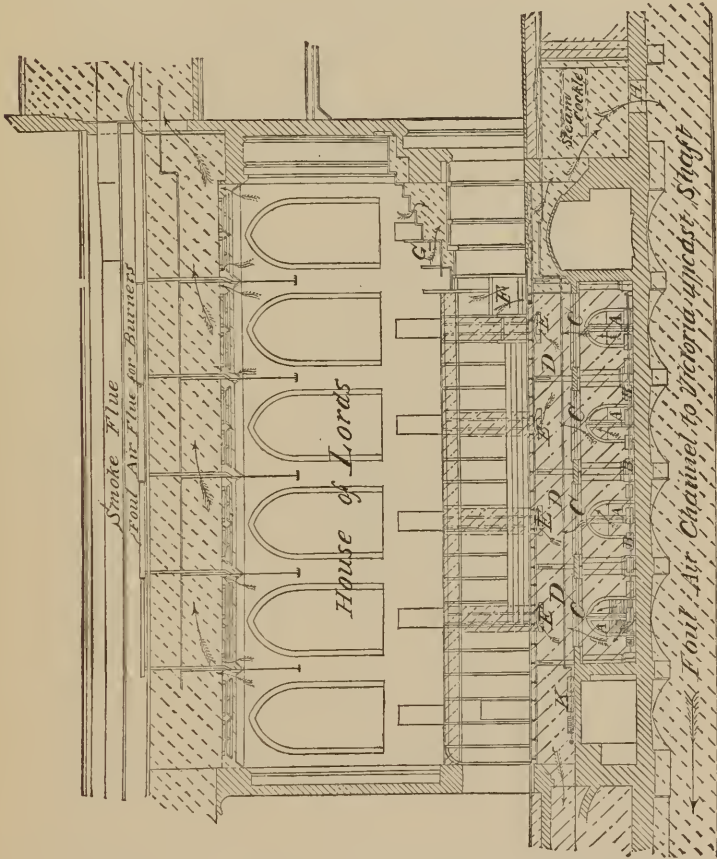 Smoke Flue
Foul Air Flue for Burners
House of Lords
G
Steam
Cockle
F
E E E E
D D D
C C C C
A A A A
B B B
Foul Air Channel to Victoria upcast Shaft